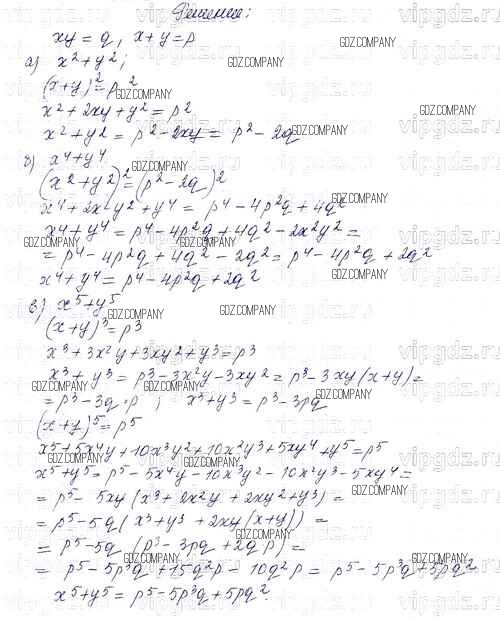 Решение:
xy = q, x+y = p
а) x² + y²;
(x+y)² = p²
x² + 2xy + y² = p²
x² + y² = p² - 2xy = p² - 2q
б) x⁴ + y⁴
(x² + y²)² = (p² - 2q)²
x⁴ + 2x²y² + y⁴ = p⁴ - 4p²q + 4q²
x⁴ + y⁴ = p⁴ - 4p²q + 4q² - 2x²y² =
= p⁴ - 4p²q + 4q² - 2q² = p⁴ - 4p²q + 2q²
x⁴ + y⁴ = p⁴ - 4p²q + 2q²
в) x⁵ + y⁵
(x+y)³ = p³
x³ + 3x²y + 3xy² + y³ = p³
x³ + y³ = p³ - 3x²y - 3xy² = p³ - 3xy(x+y) =
= p³ - 3q·p ; x³ + y³ = p³ - 3pq
(x+y)⁵ = p⁵
x⁵ + 5x⁴y + 10x³y² + 10x²y³ + 5xy⁴ + y⁵ = p⁵
x⁵ + y⁵ = p⁵ - 5x⁴y - 10x³y² - 10x²y³ - 5xy⁴ =
= p⁵ - 5xy(x³ + 2x²y + 2xy² + y³) =
= p⁵ - 5q(x³ + y³ + 2xy(x+y)) =
= p⁵ - 5q (p³ - 3pq + 2qp) =
= p⁵ - 5p³q + 15q²p - 10q²p = p⁵ - 5p³q + 5pq²
x⁵ + y⁵ = p⁵ - 5p³q + 5pq²